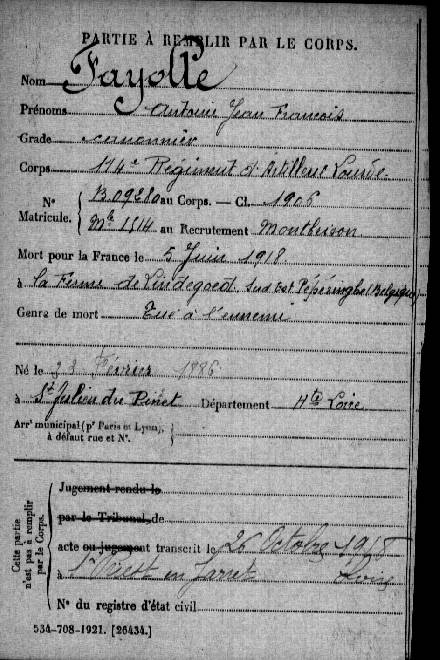 PARTIE À REMPLIR PAR LE CORPS.
Nom Fayolle
Prénoms Antoine Jean Francois
Grade canonnier
Corps 114e Régiment d'Artillerie Lourde
N° Matricule. { B.0928 au Corps. — Cl. 1906
Mle 1514 au Recrutement Montbrison
Mort pour la France le 5 Juin 1918
à la Ferme de Lindegoed, Sud Est Pépéringhe (Belgique)
Genre de mort Tué à l'ennemi
Né le 23 Février 1886
à St Julien du Pinet Département Hte Loire
Arrt municipal (pr Paris et Lyon), à défaut rue et N°.
Cette partie n'est pas à remplir par le Corps.
Jugement rendu le
par le Tribunal de
acte ou jugement transcrit le 26 Octobre 1918
à St Priest en Jarret Loire
N° du registre d'état civil
534-708-1921. [26434.]